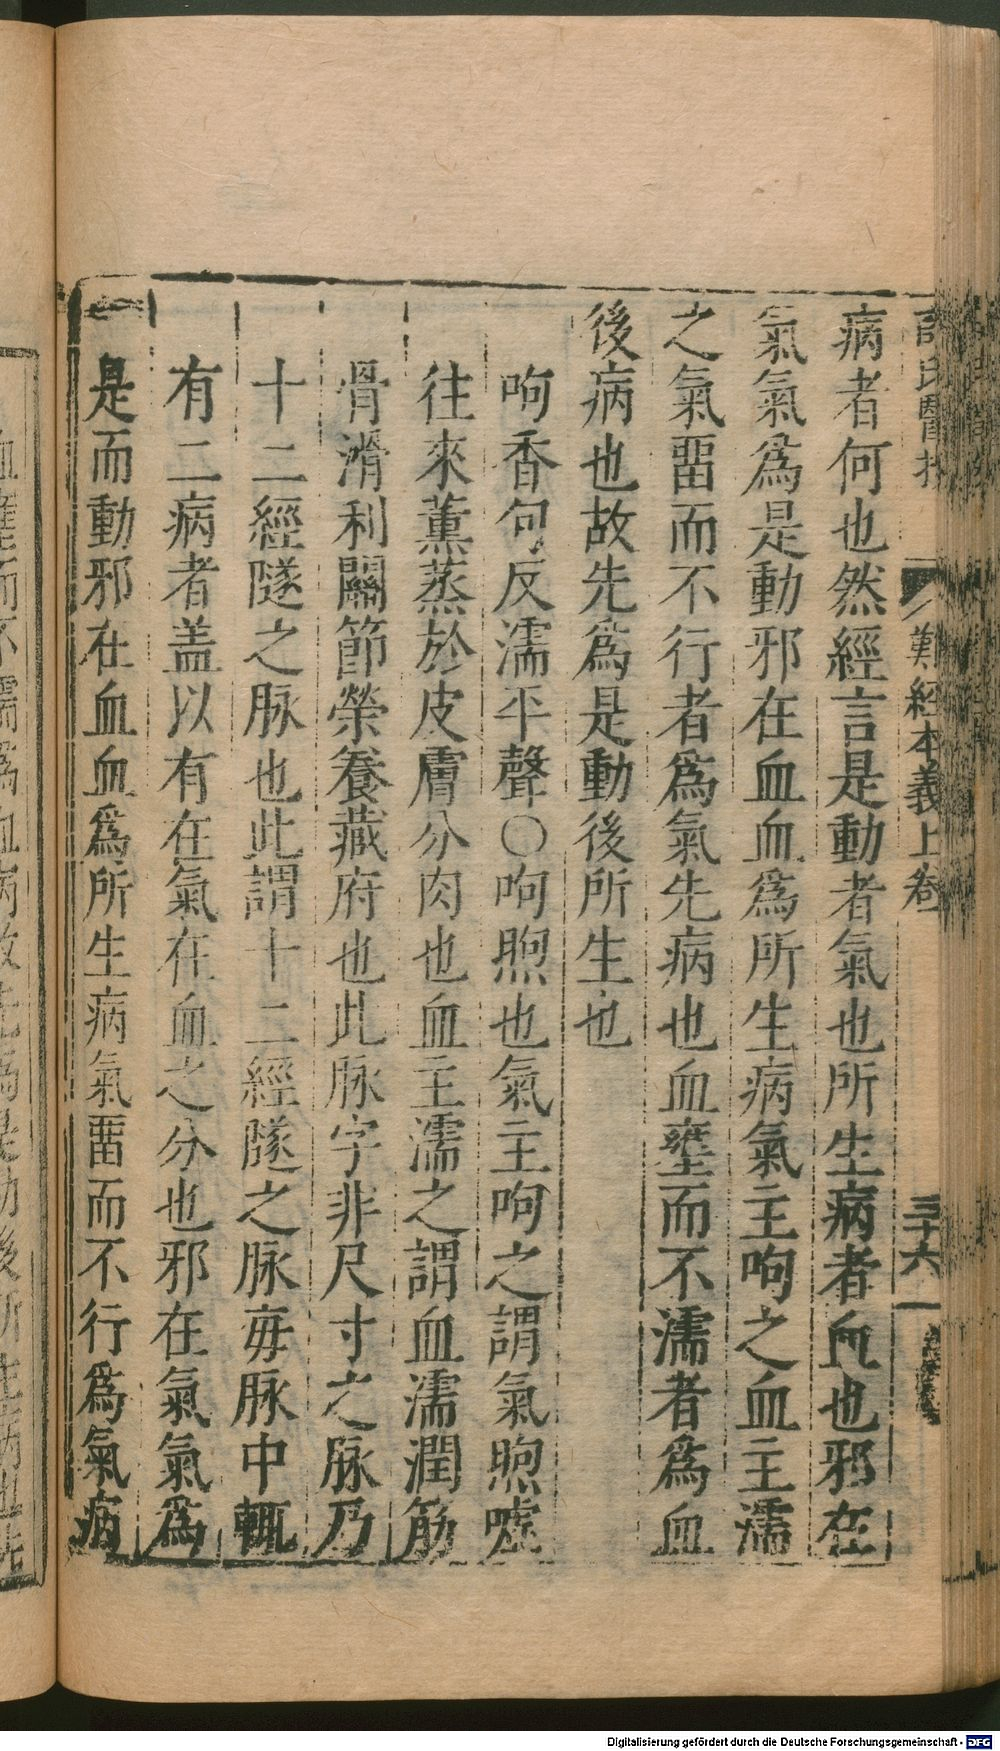 難經本義上卷
三十六
病者何也然經言是動者氣也所生病者血也邪在
氣氣爲是動邪在血血爲所生病氣主呴之血主濡
之氣畱而不行者爲氣先病也血壅而不濡者爲血
後病也故先爲是動後所生也
呴香句反濡平聲○呴煦也氣主呴之謂氣煦噓
往來薰蒸於皮膚分肉也血主濡之謂血濡潤筋
骨滑利關節榮養藏府也此脉字非尺寸之脉乃
十二經隧之脉也此謂十二經隧之脉每脉中輒
有二病者盖以有在氣在血之分也邪在氣氣爲
是而動邪在血血爲所生病氣畱而不行爲氣病
Digitalisierung gefördert durch die Deutsche Forschungsgemeinschaft - DFG